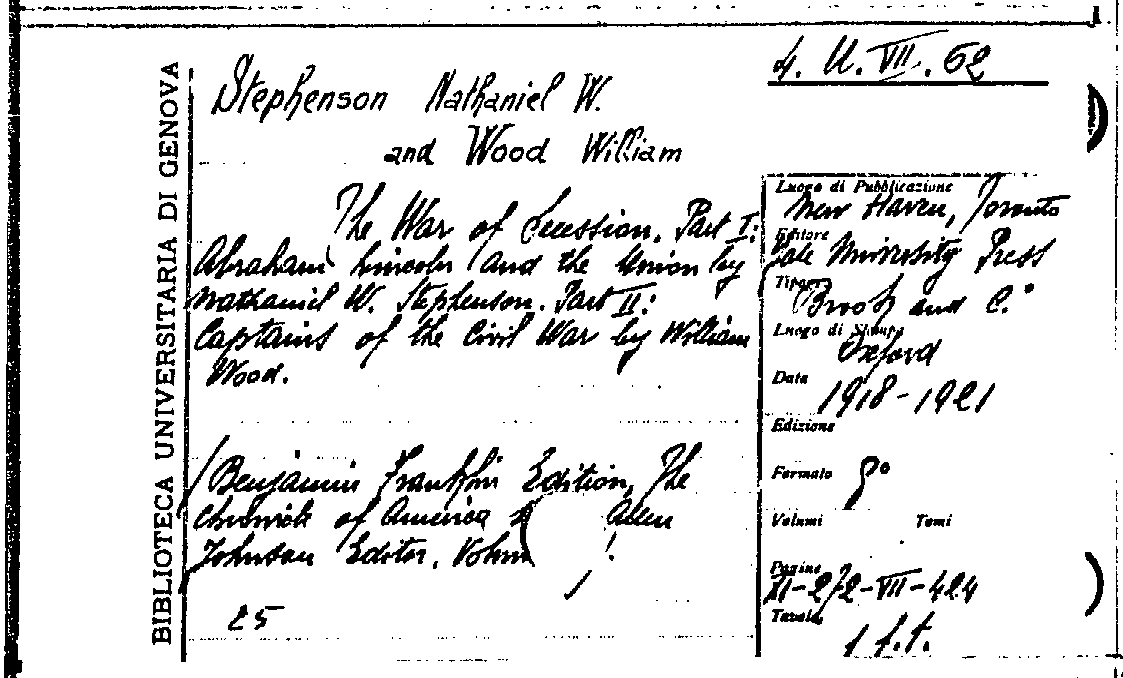 4. U. VII. 62
BIBLIOTECA UNIVERSITARIA DI GENOVA
Stephenson Nathaniel W.
and Wood William
The War of Secession. Part I:
Abraham Lincoln and the Union by
Nathaniel W. Stephenson. Part II:
Captains of the Civil War by William
Wood.
(Benjamin Franklin Edition, The
Chronicle of America Allen
Johnson Editor.
25
Luogo di Pubblicazione
New Haven, Toronto
Editore
Yale University Press
Tipogr.
Brook and C.°
Luogo di Stampa
Oxford
Data
1918-1921
Edizione
Formato
8°
Volumi Tomi
Pagine
XI-272-VII-424
Tavole
1 f.t.